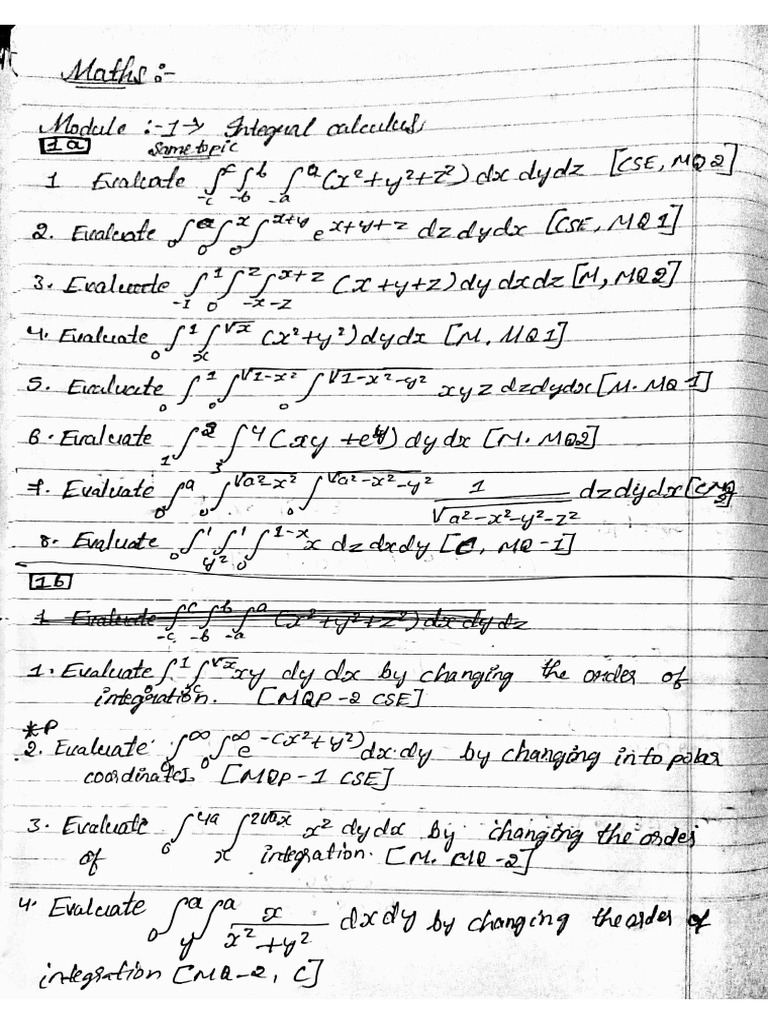 Maths:-
Module :-1→ Integral calculus
1a Same topic
1 Evaluate ∫_{-c}^{c} ∫_{-b}^{b} ∫_{-a}^{a} (x²+y²+z²) dx dy dz [CSE, MQ2]
2. Evaluate ∫_0^a ∫_0^x ∫_0^{x+y} e^{x+y+z} dz dy dx [CSE, MQ1]
3. Evaluate ∫_{-1}^1 ∫_0^z ∫_{x-z}^{x+z} (x+y+z) dy dx dz [M, MQ2]
4. Evaluate ∫_0^1 ∫_x^{√x} (x²+y²) dy dx [M. MQ1]
5. Evaluate ∫_0^1 ∫_0^{√1-x²} ∫_0^{√1-x²-y²} xyz dz dy dx [M. MQ1]
6. Evaluate ∫_1^2 ∫_3^4 (xy + e^y) dy dx [M. MQ2]
7. Evaluate ∫_0^a ∫_0^{√a²-x²} ∫_0^{√a²-x²-y²} 1/√a²-x²-y²-z² dz dy dx [C MQ 2]
8. Evaluate ∫_0^1 ∫_{y²}^1 ∫_0^{1-x} x dz dx dy [C, MQ-1]
1b
1 Evaluate ∫_{-c}^{c} ∫_{-b}^{b} ∫_{-a}^{a} (x²+y²+z²) dx dy dz
1. Evaluate ∫_0^1 ∫_x^{√x} xy dy dx by changing the order of
integration. [MQP-2 CSE]
*P
2. Evaluate ∫_0^∞ ∫_0^∞ e^{-(x²+y²)} dx.dy by changing into polar
coordinates. [MQP-1 CSE]
3. Evaluate ∫_0^{4a} ∫_x^{2√ax} x² dy dx by changing the order
of integration. [M. MQ-2]
4. Evaluate ∫_0^a ∫_y^a x/x²+y² dx dy by changing the order of
integration [MQ-2, C]